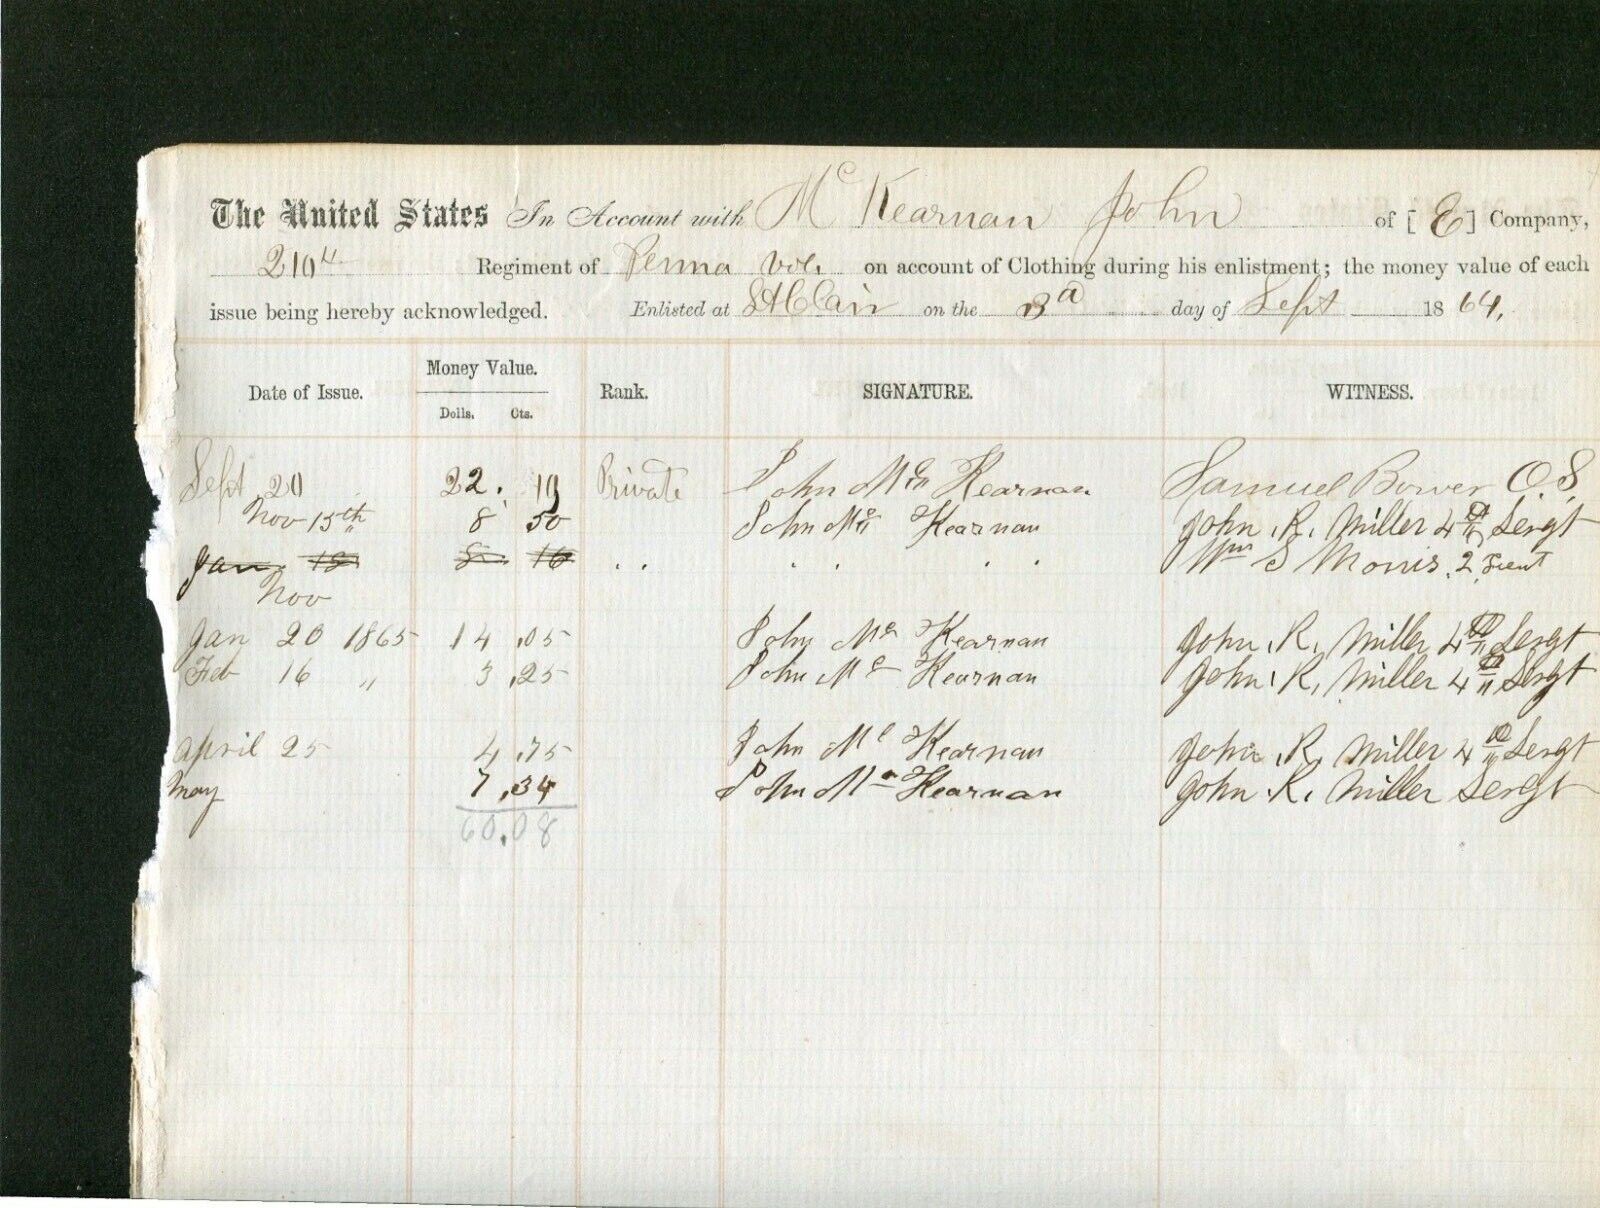 The United States In Account with Mc Kearnan John of [E] Company,
210th Regiment of Penna Vol. on account of Clothing during his enlistment; the money value of each
issue being hereby acknowledged. Enlisted at St Clair on the 3d day of Sept 1864.
Date of Issue. Money Value. Rank. SIGNATURE. WITNESS.
Dolls. Cts.
Sept 20 22. 19 Private John Mc Kearnan Samuel Bower O.S.
Nov 15th 8 50 John Mc Kearnan John. R. Miller 4th Sergt
Jan. 18 8 16 . . . . . . Wm S Morris. 2 Lieut
Nov
Jan 20 1865 14 .05 John Mc Kearnan John. R. Miller 4th Sergt
Feb 16 " 3 .25 John Mc Kearnan John. R. Miller 4th Sergt
April 25 4 .75 John Mc Kearnan John. R. Miller 4th Sergt
May 7 .34 John Mc Kearnan John. R. Miller Sergt
60.08